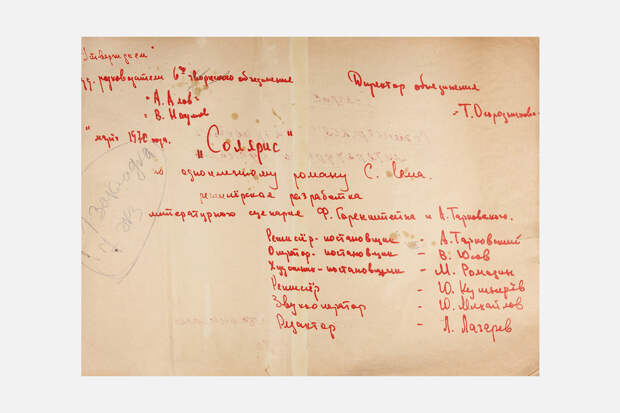 "Утверждаем"
худ. руководители 6го творческого объединения
- А. Алов -
- В. Наумов
" март 1970 года.
Директор объединения
- Т. Огородникова -
"Солярис"
по одноименному роману С. Лема.
режиссёрская разработка
литературного сценария Ф. Горенштейна и А. Тарковского.
Режиссёр-постановщик - А. Тарковский
Оператор-постановщик - В. Юсов
Художник-постановщик - М. Ромадин
Режиссёр - Ю. Кушнерёв
Звукооператор - Ю. Михайлов
Редактор - Л. Лазарев
Закладка
экз